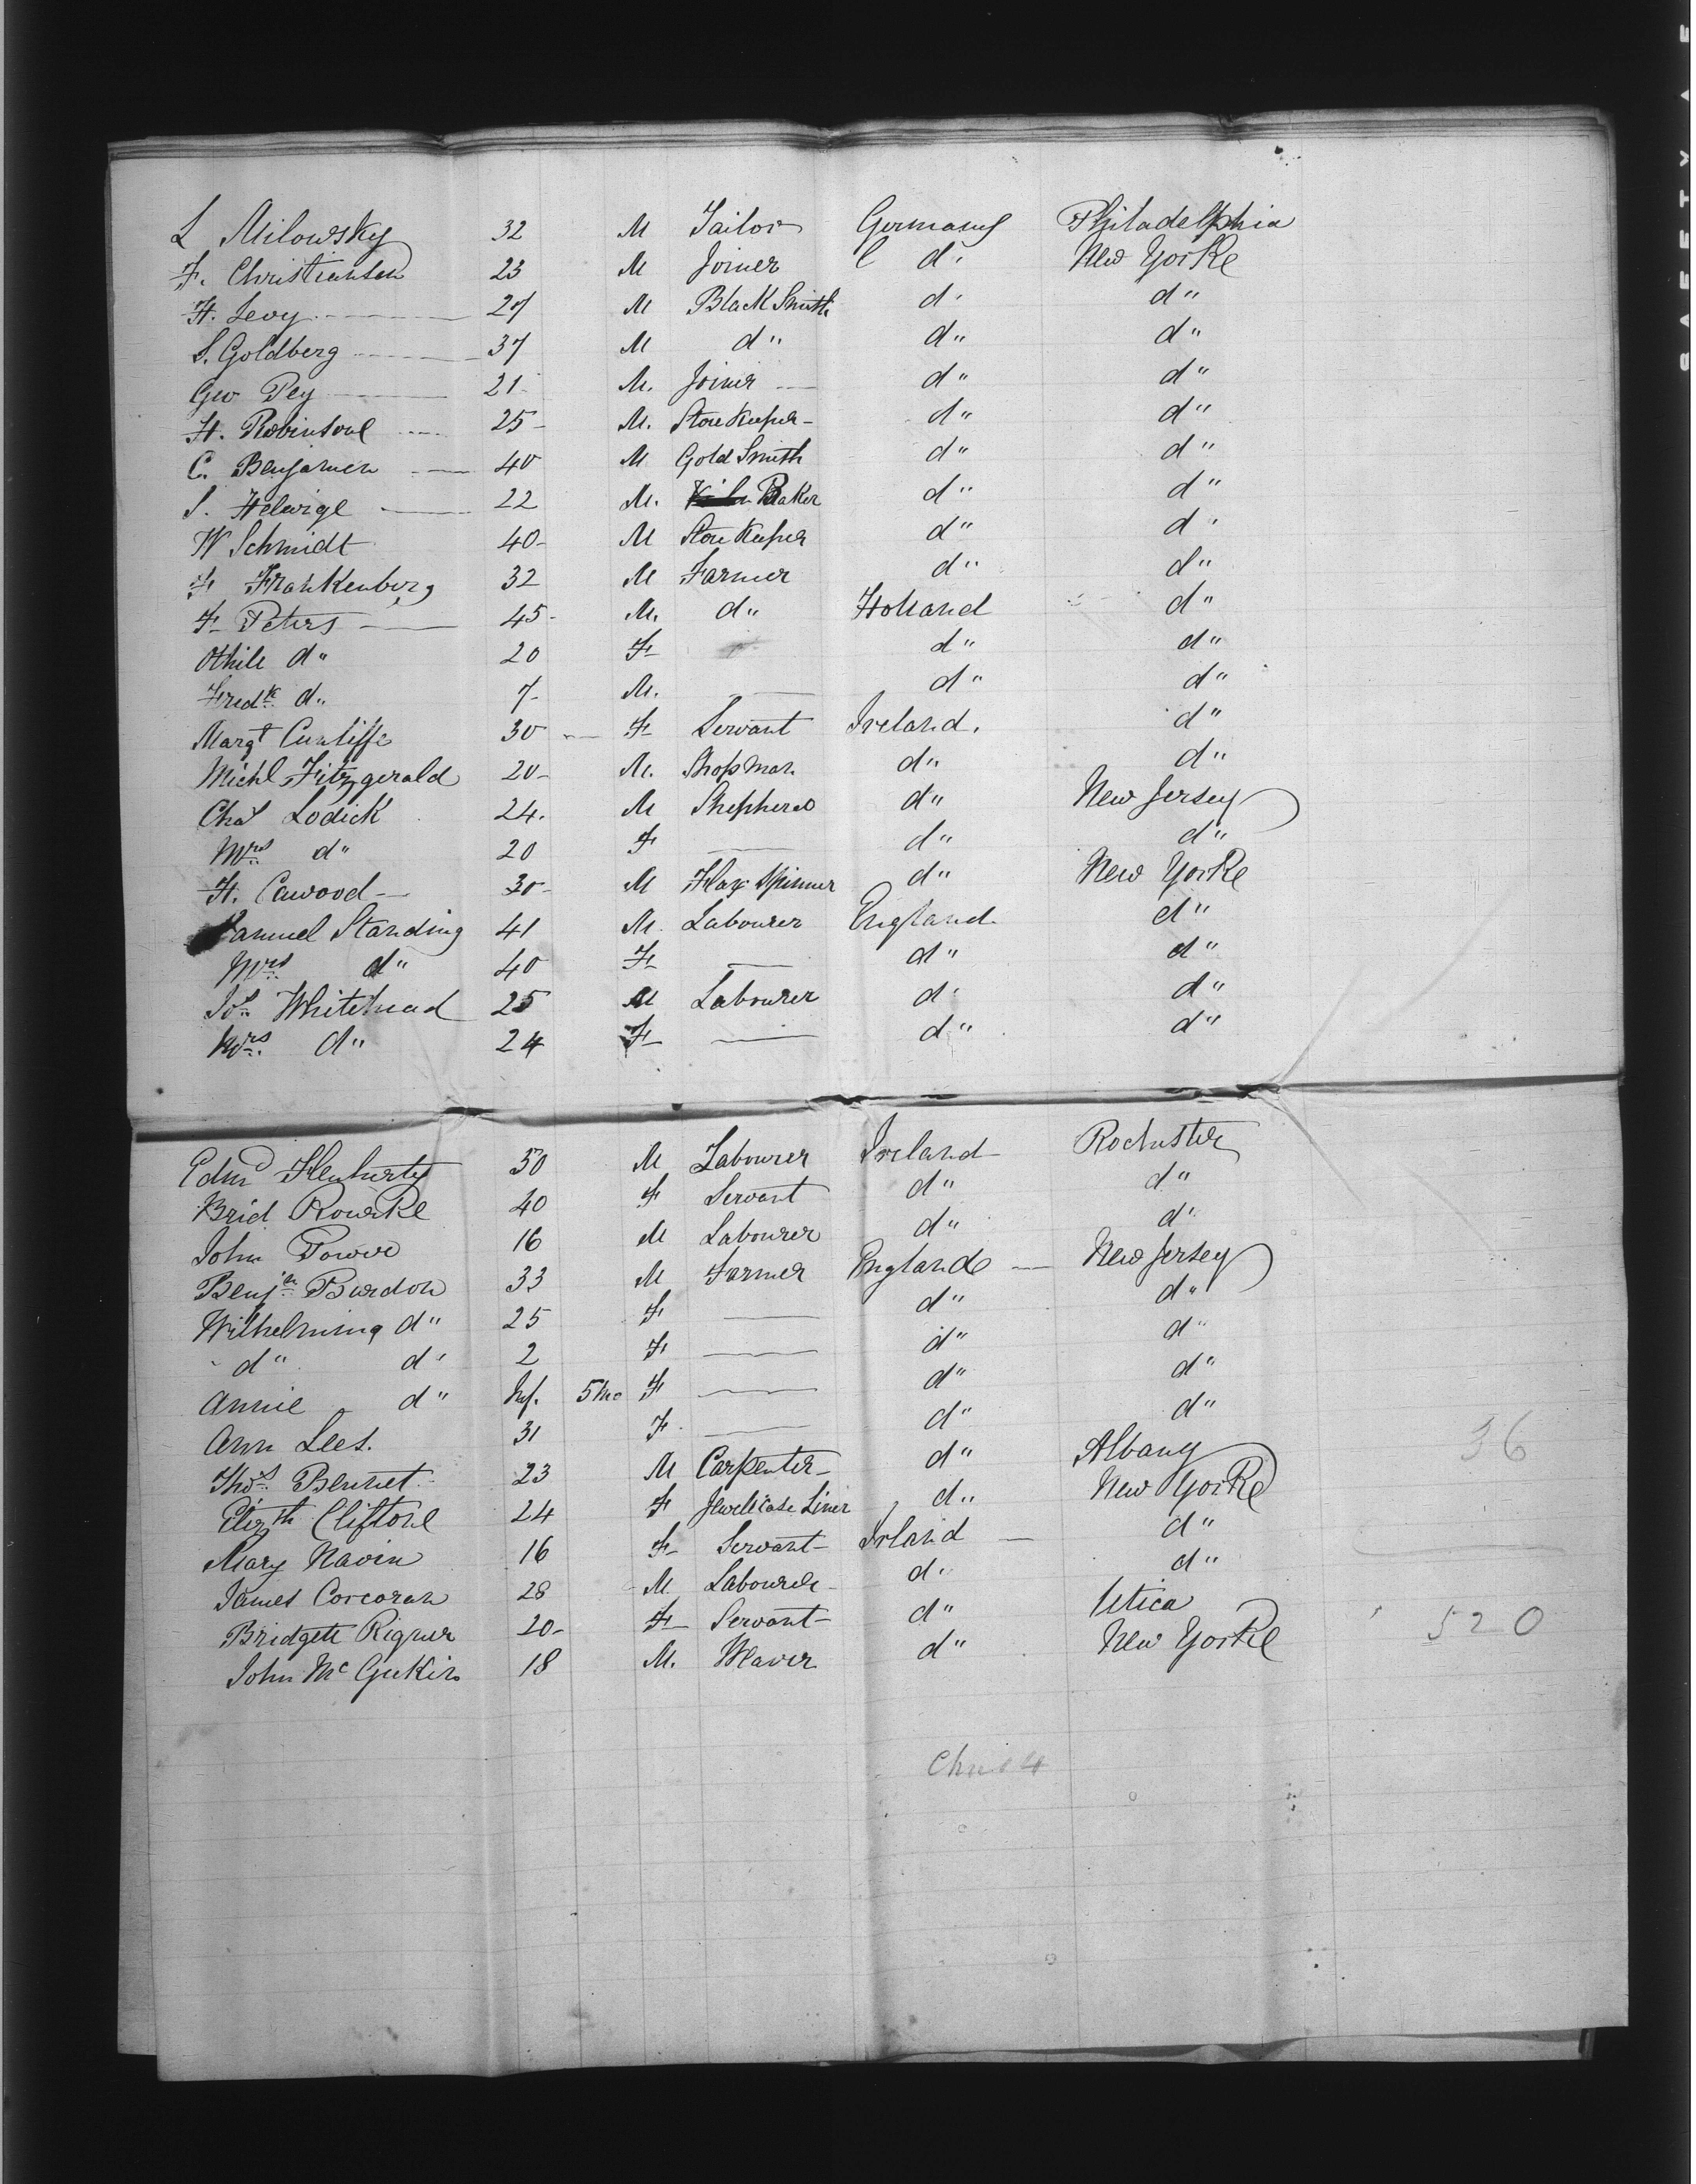 L Milowsky 32 M Tailor Germany Philadelphia
F. Christiansen 23 M Joiner d" New Yorke
H. Levy 27 M Black Smith d" d"
S. Goldberg 37 M d" d" d"
Geo Pey 21 M. Joiner d" d"
H. Robinsone 25 M. Store Keeper d" d"
C. Benjamen 40 M Gold Smith d" d"
S. Helwige 22 M. Baker d" d"
W Schmidt 40 M Store Keeper d" d"
F Frankenberg 32 M Farmer d" d"
F Peters 45 M. d" Holland d"
Othile d" 20 F d" d"
Fredk d" 7 M. d" d"
Margt Cunliffe 30 F Servant Ireland. d"
Michl Fitzgerald 20 M. Shopman d" d"
Chas Lodick 24. M Shepherd d" New Jersey
Mrs d" 20 F d" d"
H. Cawood 30 M Flax Spinner d" New Yorke
Samuel Standing 41 M. Labourer England d"
Mrs d" 40 F d" d"
Jos Whitehead 25 M Labourer d" d"
Mrs. d" 24 F d" d"
Edmd 50 M Labourer Ireland Rochester
Brid Rourke 40 F Servant d" d"
John Power 16 M Labourer d" d"
Benjn Burdon 33 M Farmer England New Jersey
Wilhelmina d" 25 F d" d"
d" d" 2 F d" d"
Annie d" Inf. 5 Mo F d" d"
Ann Lees. 31 F d" d"
Thos Bennet 23 M Carpenter d" Albany
Elizth Cliftone 24 F Jewelcase Liner d" New Yorke
Mary Navin 16 F Servant Irland d"
James Corcoran 28 M Labourer d" d"
Bridgett Rigner 20 F Servant d" Utica
John McGukin 18 M. Weaver d" New Yorke
36
520